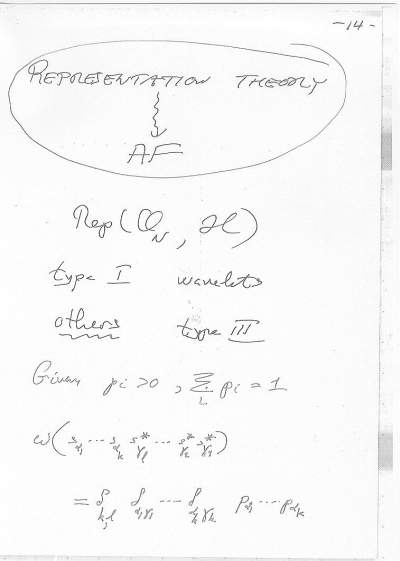 -14-
REPRESENTATION THEORY
AF
Rep(O_N, H)
type I wavelets
others type III
Given p_i > 0, Σ_i p_i = 1
ω(s_{α_1} ⋯ s_{α_k} s*_{γ_l} ⋯ s*_{γ_2} s*_{γ_1})
= δ_{k,l} δ_{α_1γ_1} ⋯ δ_{α_kγ_k} p_{α_1} ⋯ p_{α_k}